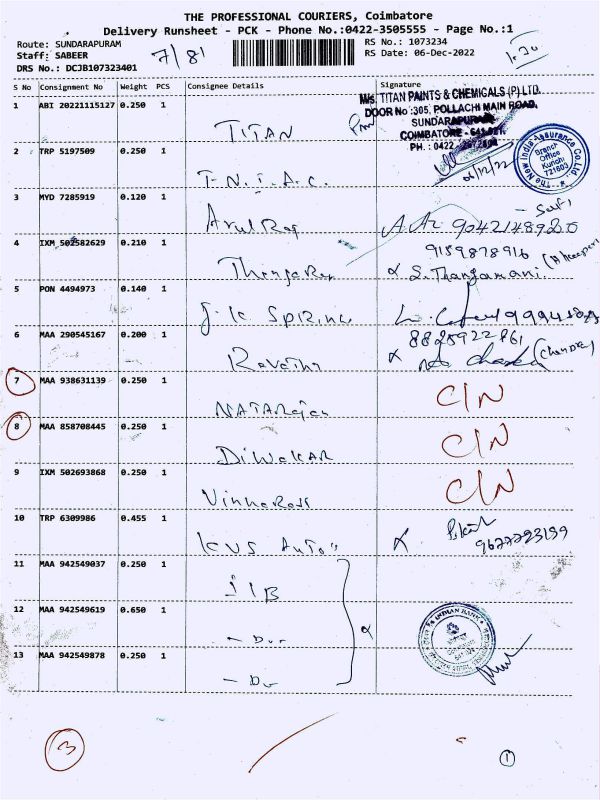 THE PROFESSIONAL COURIERS, Coimbatore
Delivery Runsheet - PCK - Phone No.:0422-3505555 - Page No.:1
Route: SUNDARAPURAM
Staff: SABEER
DRS No.: DCJB107323401
7/81
RS No.: 1073234
RS Date: 06-Dec-2022
1.30
S No Consignment No Weight PCS Consignee Details Signature
1 ABI 20221115127 0.250 1 TITAN
M/s. TITAN PAINTS & CHEMICALS (P) LTD.
DOOR No :305, POLLACHI MAIN ROAD,
SUNDARAPURAM
COIMBATORE - 641 021.
PH. : 0422
06/12/22
The New India Assurance Co.Ltd.
Branch
Office
Kurichi
721603
2 TRP 5197509 0.250 1 T.N.I.A.C.
3 MYD 7285919 0.120 1 Arul Raj
9042148920
4 IXM 502582629 0.210 1
9159878916
S. Thangamani
5 PON 4494973 0.140 1 J.K. Spring
6 MAA 290545167 0.200 1 Revathi
8825922861
7 MAA 938631139 0.250 1 NATARajan C/N
8 MAA 858708445 0.250 1 DiwakAR C/N
9 IXM 502693868 0.250 1 C/N
10 TRP 6309986 0.455 1 KVS Auto's
9677793199
11 MAA 942549037 0.250 1 IIB
12 MAA 942549619 0.650 1 - Do -
INDIAN BANK
13 MAA 942549878 0.250 1 - Do
3
1